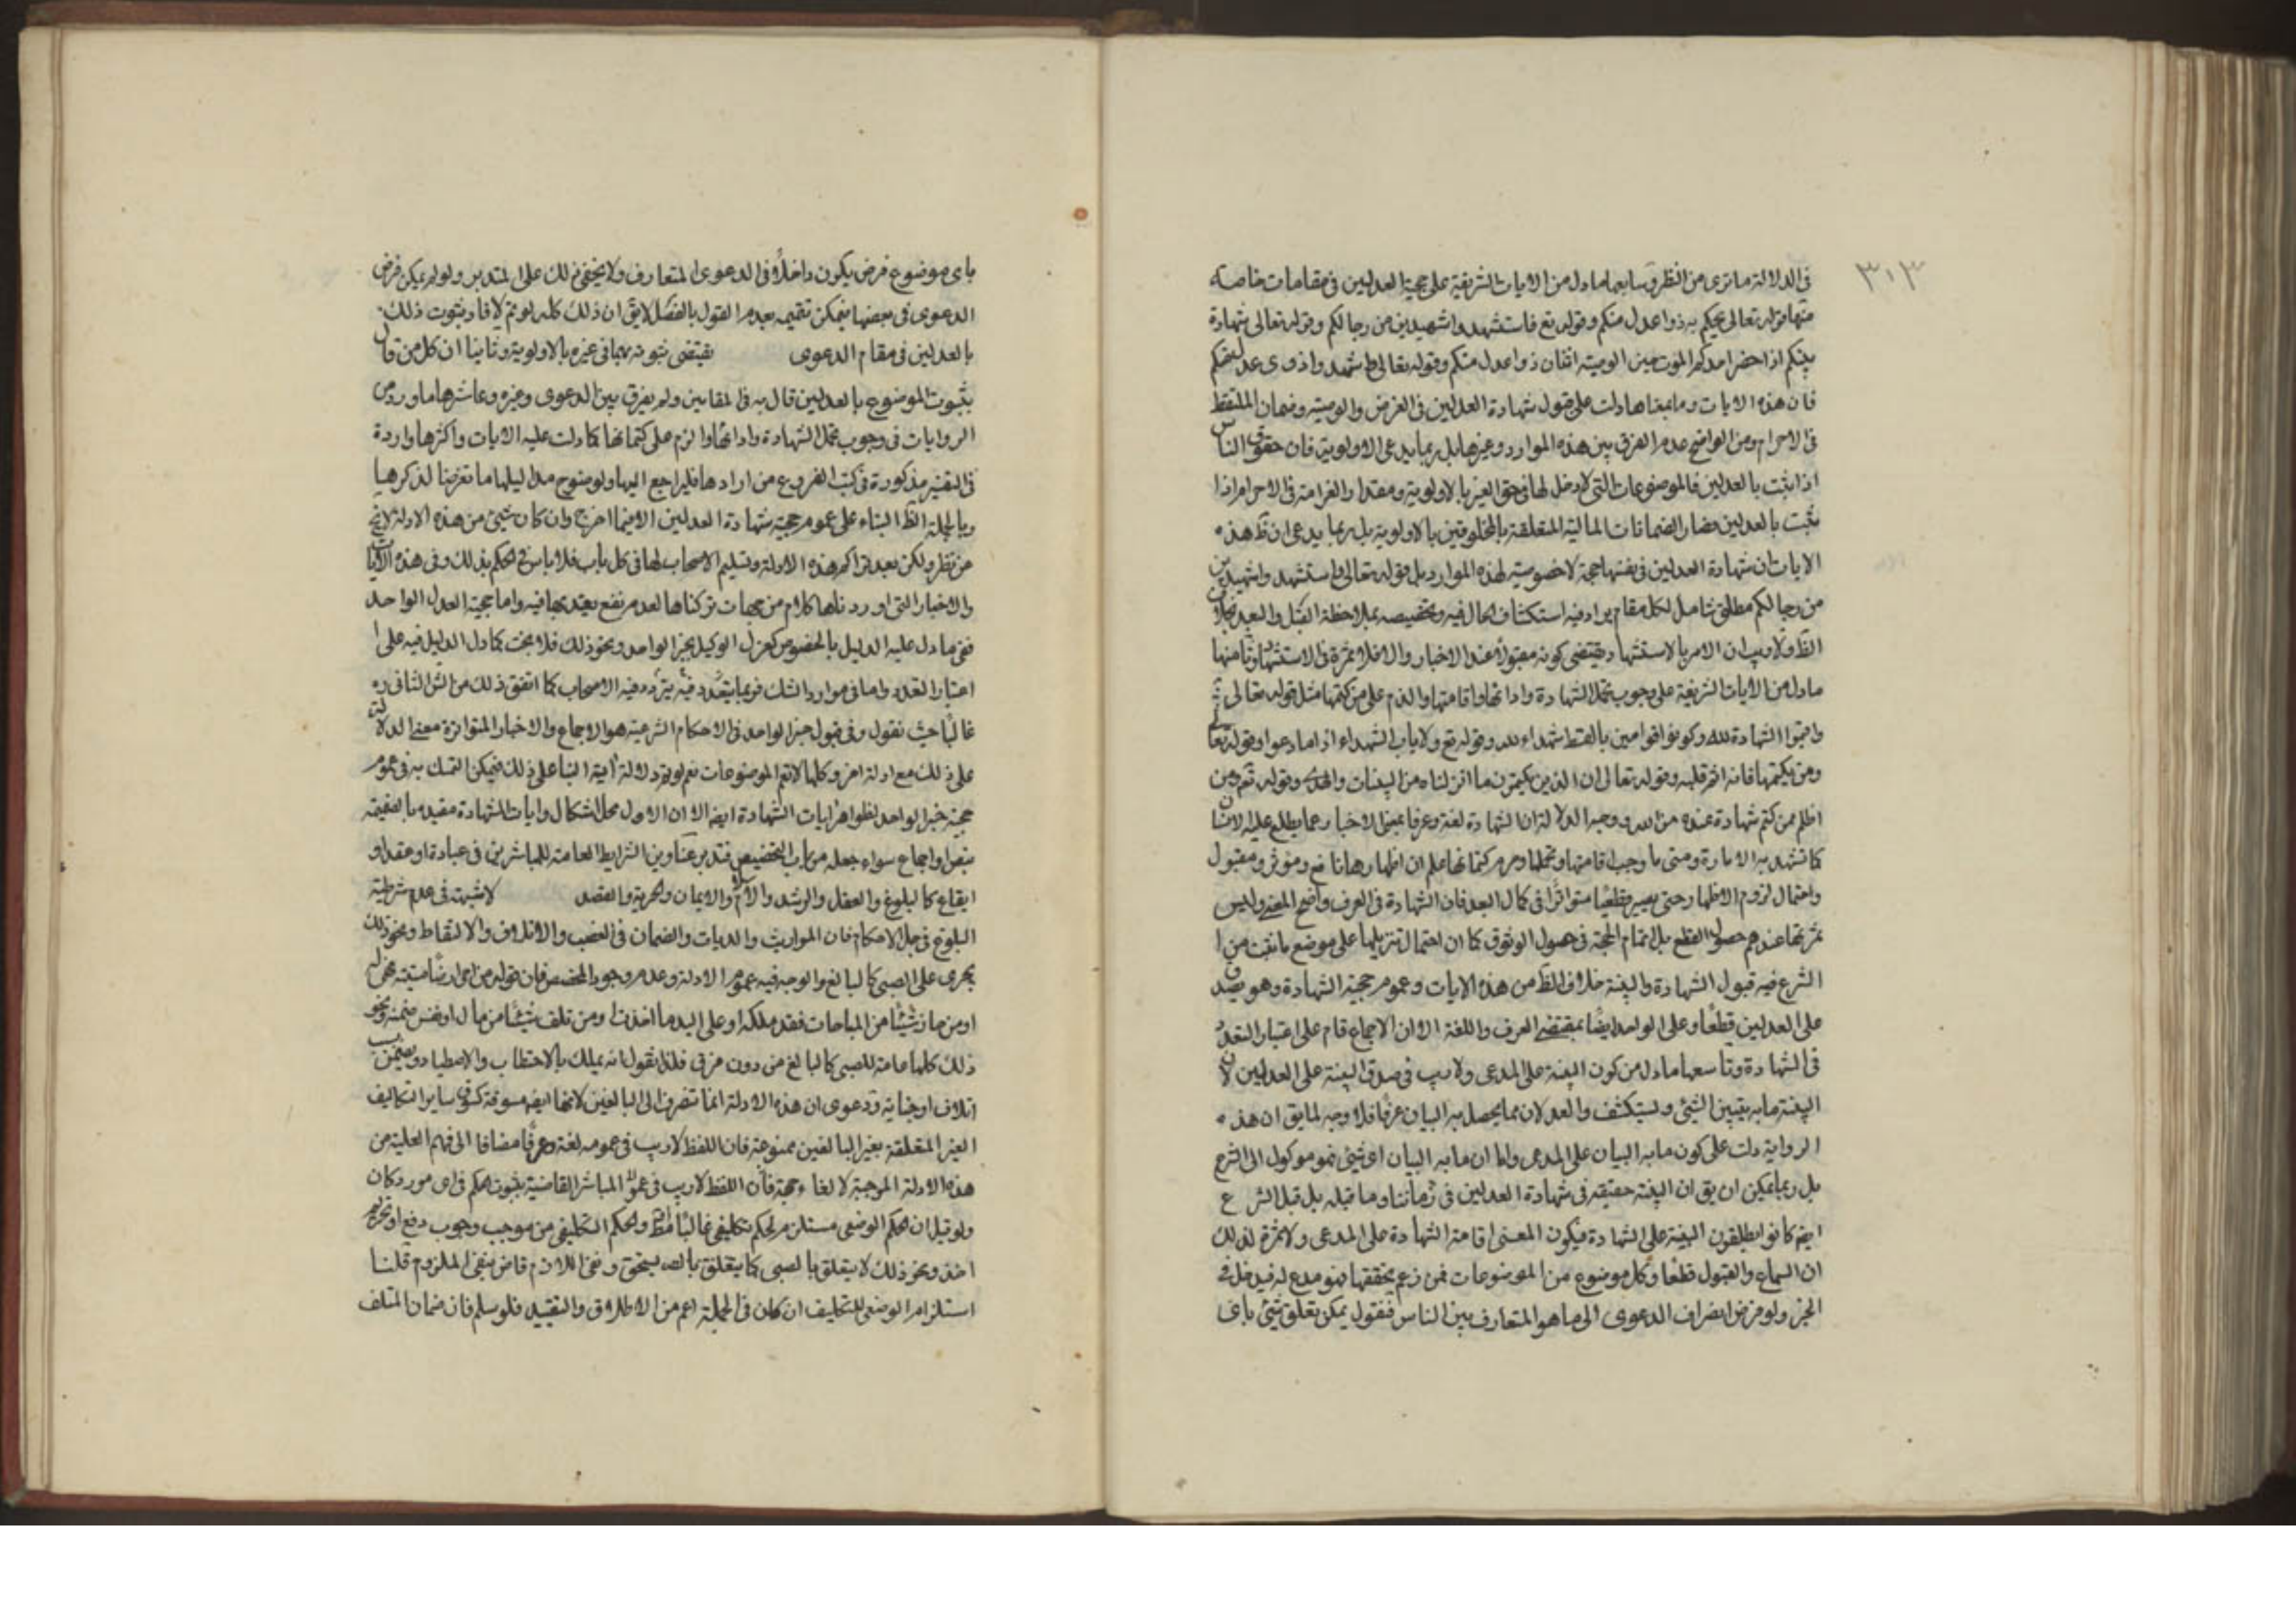 ٣١٣
فى الدلالة ما ترى من النظر وسابعها ما دل من الايات الشريفة على حجية العدلين فى مقامات خاصة
منها قوله تعالى يحكم به ذوا عدل منكم وقوله تع فاستشهدوا شهيدين من رجالكم وقوله تعالى شهادة
بينكم اذا حضر احدكم الموت حين الوصية اثنان ذوا عدل منكم وقوله تعالى واشهدوا ذوى عدل منكم
فان هذه الايات وما بمعناها دلت على قبول شهادة العدلين فى القرض والوصية وضمان الملتقط
فى الاحرام ومن الواضح عدم الفرق بين هذه الموارد وغيرها بل ربما يدعى الاولوية فان حقوق الناس
اذا ثبت بالعدلين فالموضوعات التى لا دخل لها فى حق الغير بالاولوية ومقدار الغرامة فى الاحرام اذا
ثبت بالعدلين فصار الضمانات المالية المتعلقة بالمخلوقين بالاولوية بل ربما يدعى ان ظ هذه
الايات ان شهادة العدلين فى نفسها حجة لا خصوصية لهذه الموارد بل قوله تعالى واستشهدوا شهيدين
من رجالكم مطلق شامل لكل مقام يراد فيه استكشاف الحال فيه وتخصيصه بملاحظة القبل والبعد خلاف
الظ ولا ريب ان الامر بالاستشهاد يقتضى كونه مقبولا عند الاخبار والا فلا ثمرة فى الاستشهاد وثامنها
ما دل من الايات الشريفة على وجوب تحمل الشهادة وادائها واقامتها والذم على من كتمها مثل قوله تعالى
واقيموا الشهادة لله وكونوا قوامين بالقسط شهداء لله وقوله تع ولا ياب الشهداء اذا ما دعوا وقوله تعالى
ومن يكتمها فانه اثم قلبه وقوله تعالى ان الذين يكتمون ما انزلناه من البينات والهدى وقوله تع ومن
اظلم ممن كتم شهادة عنده من الله ووجه الدلالة ان الشهادة لغة وعرفا بمعنى الاخبار عما يطلع عليه الانسان
كما تشهد به الامارة ومتى ما وجب اقامتها وتحملها وحرم كتمانها علم ان اظهارها نافع ومؤثر ومقبول
واحتمال لزوم الاظهار حتى يصير قطعيا متواترا فى كمال البعد فان الشهادة فى العرف واضح المعنى وليس
ثمرتها عندهم حصول القطع بل اتمام الحجة فى حصول الوثوق كما ان احتمال تنزيلها على موضع ما ثبت من
الشرع فيه قبول الشهادة والبينة خلاف الظ من هذه الايات وعموم حجية الشهادة وهو يصدق
على العدلين قطعا وعلى الواحد ايضا بمقتضى العرف واللغة الا ان الاجماع قام على اعتبار التعدد
فى الشهادة وتاسعها ما دل من كون البينة على المدعى ولا ريب فى صدق البينة على العدلين لان
البينة ما به يتبين الشئ ويستكشف والعدلان مما يحصل به البيان عرفا فلا وجه لما يق ان هذه
الرواية دلت على كون ما به البيان على المدعى واما ان ما به البيان اى شئ فهو موكول الى الشرع
بل ربما يمكن ان يق ان البينة حقيقة فى شهادة العدلين فى زماننا وما قبله بل قبل الشرع
ايضا كانوا يطلقون البينة على الشهادة فيكون المعنى اقامة الشهادة على المدعى ولا ثمرة لذلك
ان السماع والقبول قطعا وكل موضوع من الموضوعات فمن زعم تحققها فهو مدع له فيدخل فى
الخبر ولو فرض انصراف الدعوى الى ما هو المتعارف بين الناس فنقول يمكن تعلق شئ باى
باى موضوع فرض يكون داخلا فى الدعوى المتعارف ولا يخفى ذلك على المتدبر ولو لم يمكن فرض
الدعوى فى بعضها فيمكن تتميمه بعدم القول بالفصل لا يق ان ذلك كله لو تم لافاد ثبوت ذلك
بالعدلين فى مقام الدعوى يقتضى ثبوته بهما فى غيره بالاولوية وثانيا ان كل من قال
بثبوت الموضوع بالعدلين قال به فى المقامين ولم يفرق بين الدعوى وغيره وعاشرها ما ورد من
الروايات فى وجوب تحمل الشهادة وادائها والزم على كتمانها كما دلت عليه الايات واكثرها واردة
فى التفسير مذكورة فى كتب الفروع من ارادها فليراجع اليها ولوضوح مداليلها ما تعرضنا لذكرها
وبالجملة الظ البناء على عموم حجية شهادة العدلين الا فيما اخرج وان كان شئ من هذه الادلة لا يخ
من نظر ولكن بعد تراكم هذه الادلة وتسليم الاصحاب لها فى كل باب فلا باس فى الحكم بذلك وفى هذه الايات
والاخبار التى اوردناها كلام من جهات تركناها لعدم نفع يعتد بها فيه واما حجية العدل الواحد
ففى ما دل عليه الدليل بالخصوص كعزل الوكيل بخبر الواحد ونحو ذلك فلا بحث كما دل الدليل فيه على
اعتبار التعدد واما فى موارد الشك فربما يتردد فيه الاصحاب كما اتفق ذلك من الش الثانى ره
غالبا حيث نقول وفى قبول خبر الواحد فى الاحكام الشرعية هو الاجماع والاخبار المتواترة معنى الدلالة
على ذلك مع ادلة اخر وكلها لا تتم الموضوعات نعم لو تم دلالة اية النبأ على ذلك فيمكن التمسك به فى عموم
حجية خبر الواحد لظواهر ايات الشهادة ايضا الا ان الاول محل اشكال وايات الشهادة مقيدة بالضميمة
بنص او اجماع سواء جعله من باب التخصيص فتدبر عناوين الشرايط العامة للمباشرين فى عبادة او عقد او
ايقاع كالبلوغ والعقل والرشد والاسلام والايمان والحرية والقصد لا شبهة فى عدم شرطية
البلوغ فى جل الاحكام فان المواريث والديات والضمان فى الغصب والاتلاف والالتقاط ونحو ذلك
يجرى على الصبى كالبالغ والوجه فيه عموم الادلة وعدم وجود المخصص فان قوله من احيى ارضا ميتة فهى له
او من حاز شيئا من المباحات فقد ملكه او على اليد ما اخذت او من تلف شيئا من مال او نفس ضمنه ونحو
ذلك كلها عامة للصبى كالبالغ من دون فرق فلذا نقول انه يملك بالاحتطاب والاصطياد ويضمن بسبب
اتلاف او جناية ودعوى ان هذه الادلة انما تنصرف الى البالغين لانها ايضا مسوقة كسوق ساير التكاليف
الغير المتعلقة بغير البالغين ممنوعة فان اللفظ لا ريب فى عمومه لغة وعرفا مضافا الى فهم العلية من
هذه الادلة الموجبة لالغاء فان اللفظ لا ريب فى المباشر القاضية بثبوت الحكم فى اى مورد كان
ولو قيل ان الحكم الوضعى مستلزم لحكم تكليفى غالبا والحكم التكليفى من موجب وجوب دفع او تحريم
اخذ ونحو ذلك لا يتعلق بالصبى كما يتعلق ونفى اللازم قاض بنفى الملزوم قلنا
استلزام الوضعى للتكليف ان كان فى الجملة اعم من الاطلاق والتقييد فلو سلم فان ضمان المتلف